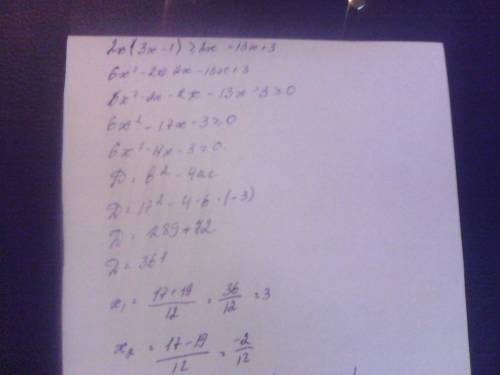 2x(3x-1) ≥ 2x - 13x+3
6x² - 2x 2x - 13x+3
6x² 2x - 2x - 13x - 3 ≥ 0
6x² - 17x - 3 ≥ 0
6x² - 17x - 3 = 0
D = b² - 4ac
D = 17² - 4 · 6 · (-3)
D = 289+72
D = 361
x₁ = (17+19)/12 = 36/12 = 3
x₂ = (17-19)/12 = -2/12